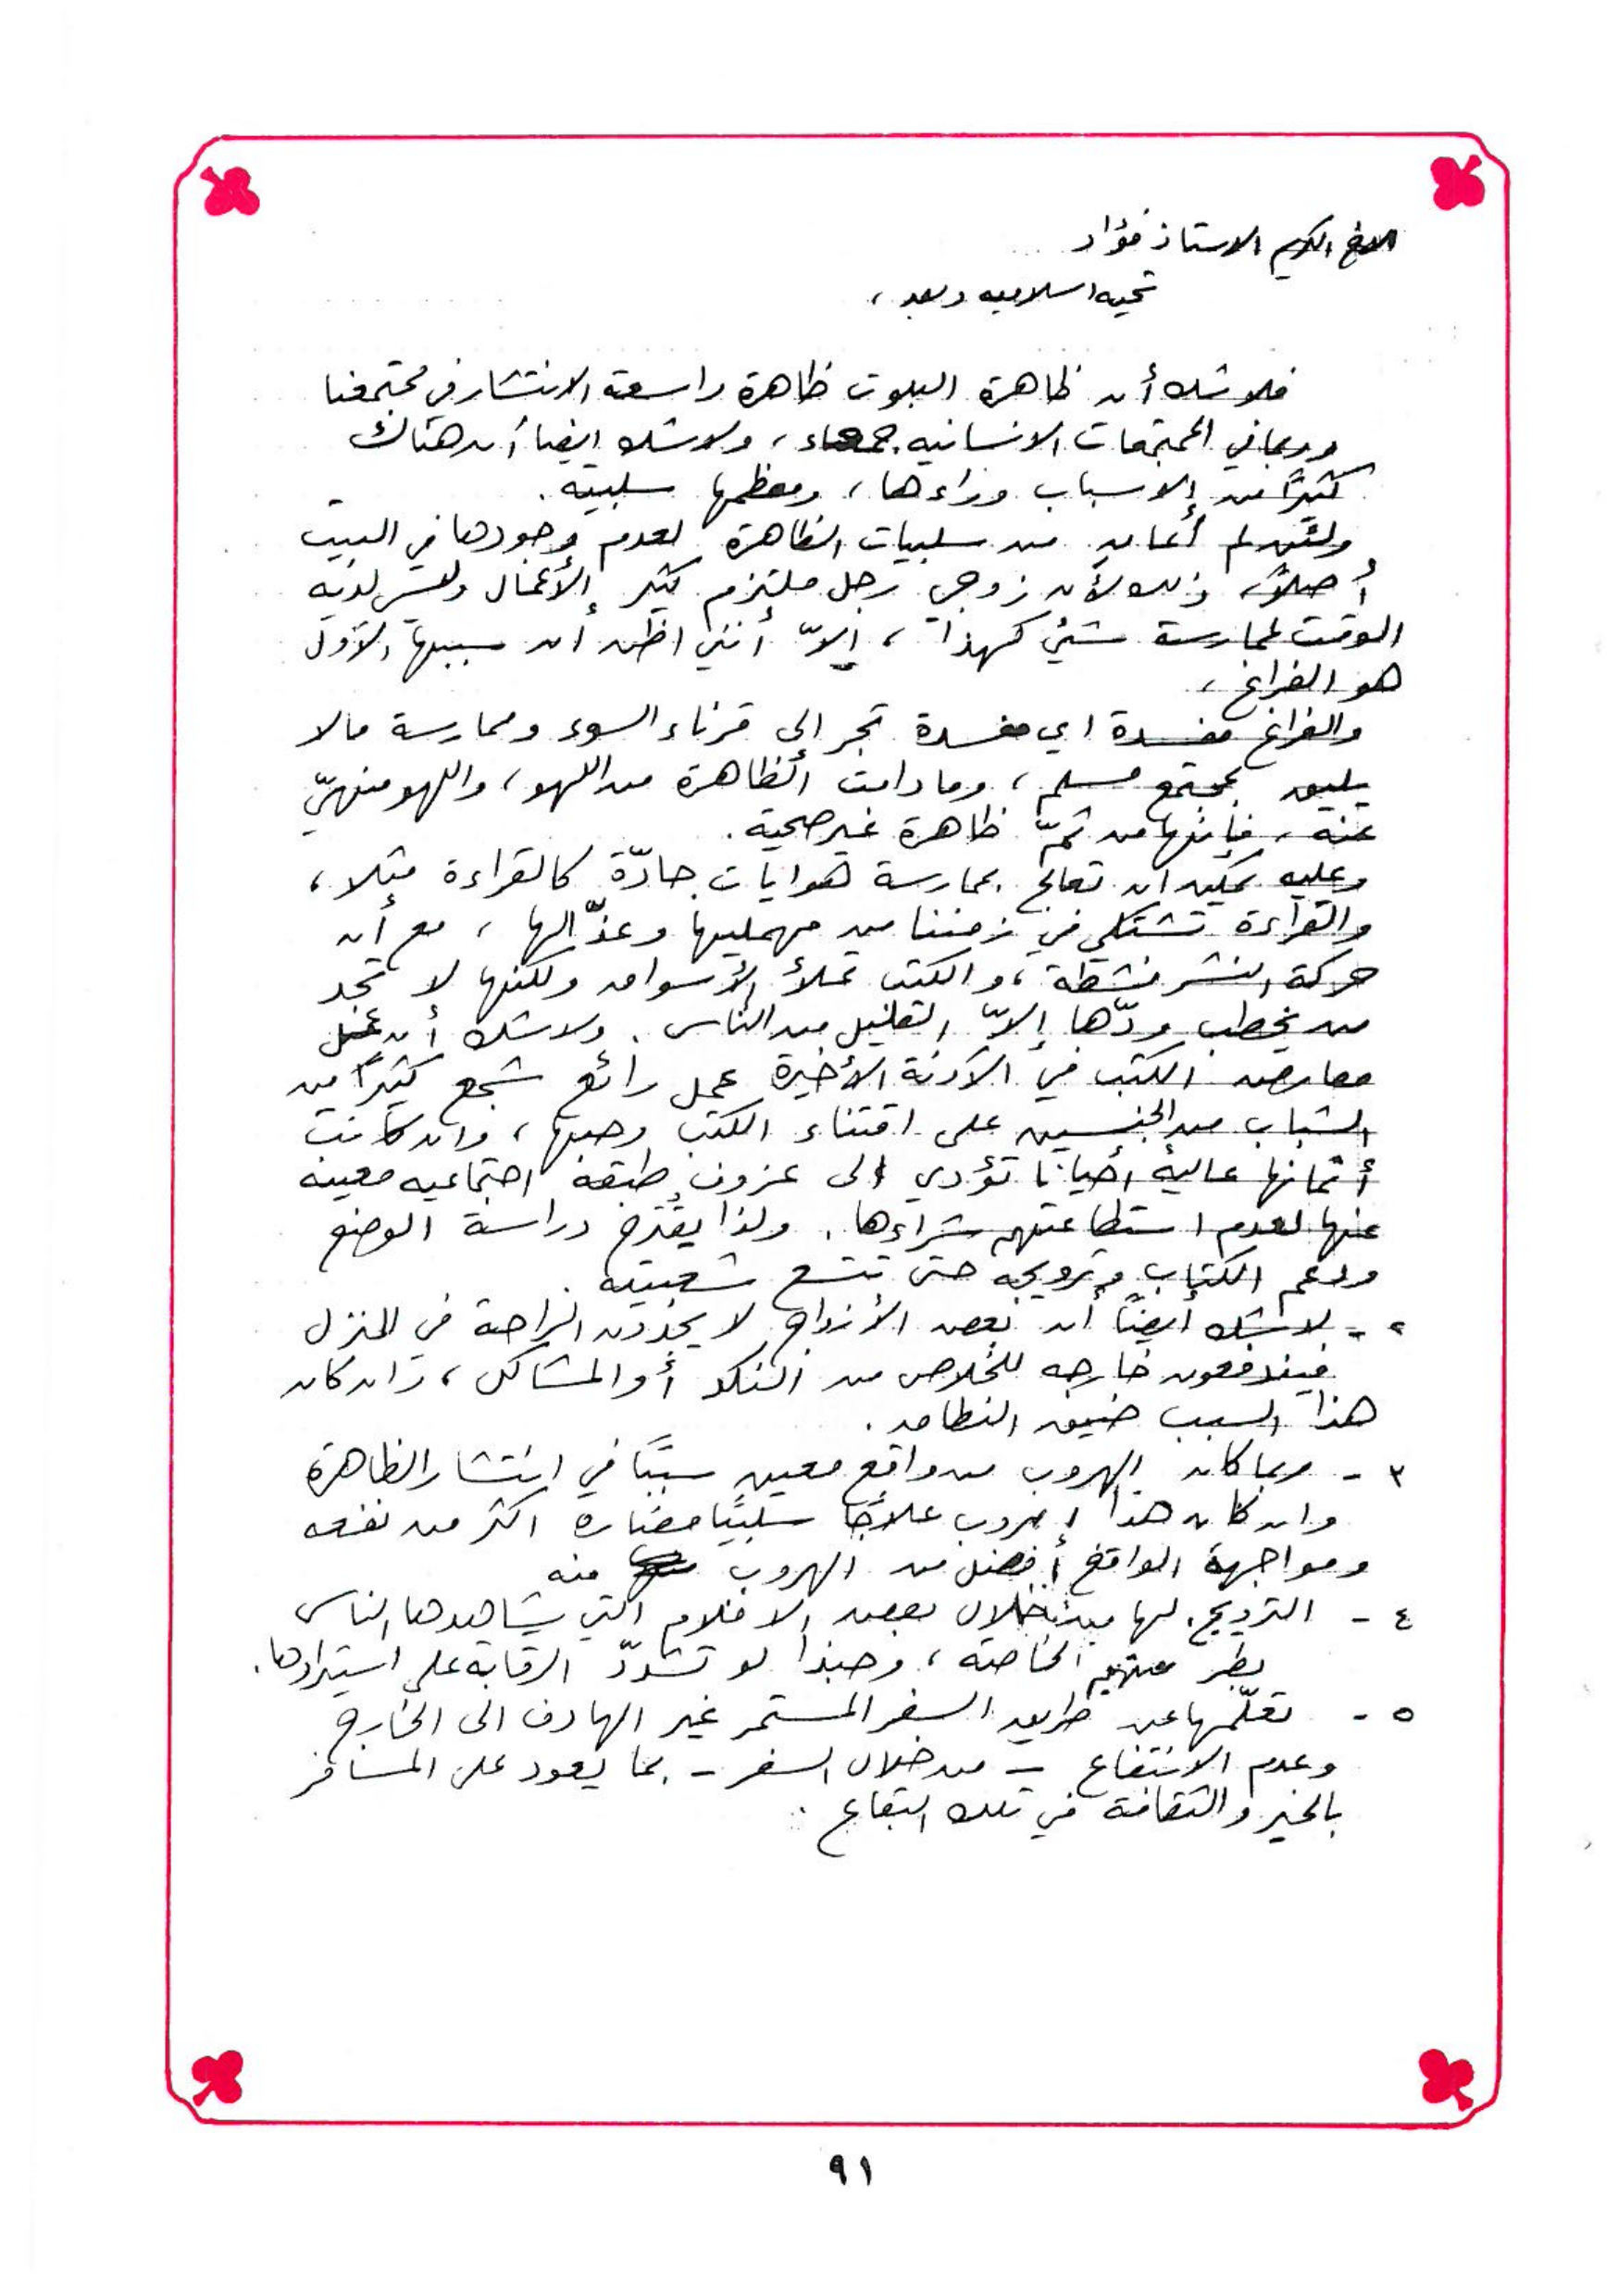 الاخ الكريم الاستاذ فؤاد
تحيه اسلاميه وبعد ،
فلا شك أن ظاهرة البلوت ظاهرة واسعة الانتشار في مجتمعنا
وربما في المجتمعات الانسانيه جمعاء ، ولا شك ايضاً أن هناك
كثيرًا من الاسباب وراءها ، ومعظمها سلبية .
ولئن لم أعان من سلبيات الظاهرة لعدم وجودها في البيت
أصلاً ، وذلك لأن زوجي رجل ملتزم كثير الأعمال وليس لديه
الوقت لممارسة شيئ كهذا ، إلاّ أنني اظن ان سببها الأول
هو الفراغ ،
والفراغ مفسدة اي مفسدة تجر إلى قرناء السوء وممارسة مالا
يليق بمجتمع مسلم ، وما دامت الظاهرة من اللهو ، واللهو منهيّ
عنه ، فإنها من ثمّ ظاهرة غير صحية .
وعليه يمكن ان تعالج بممارسة هوايات جادّة كالقراءة مثلا ،
والقراءة تشتكي في زمننا من مهمليها وعذّالها ، مع أن
حركة النشر نشطة ، والكتب تملأ الأسواق ولكنها لا تجد
من يخطب ودّها إلاّ القليل من الناس . ولا شك أن عمل
معارض الكتب في الآونة الأخيرة عمل رائع شجع كثيرًا من
الشباب من الجنسين على اقتناء الكتب وحبها ، وان كانت
أثمانها عالية احيانا تؤدي الى عزوف طبقة اجتماعيه معينه
عنها لعدم استطاعتهم شراءها . ولذا يقترح دراسة الوضع
ودعم الكتاب وترويجه حتى تتسع شعبيته .
٢ - لا شك ايضاً ان بعض الأزواج لا يجدون الراحة في المنزل
فيندفعون خارجه للخلاص من النكد أو المشاكل ، وان كان
هذا السبب ضيق النطاق .
٣ - ربما كان الهروب من واقع معين سببًا في انتشار الظاهرة
وان كان هذا الهروب علاجًا سلبيًا مضاره اكثر من نفعه
ومواجهة الواقع أفضل من الهروب منه
٤ - الترويج لها من خلال بعض الافلام التي يشاهدها الناس
الخاصة ، وحبذا لو تشدّد الرقابة على استيرادها .
٥ - تعلّمها عن طريق السفر المستمر غير الهادف الى الخارج
وعدم الانتفاع - من خلال السفر - بما يعود على المسافر
بالخير والثقافة في تلك البقاع .
٩١